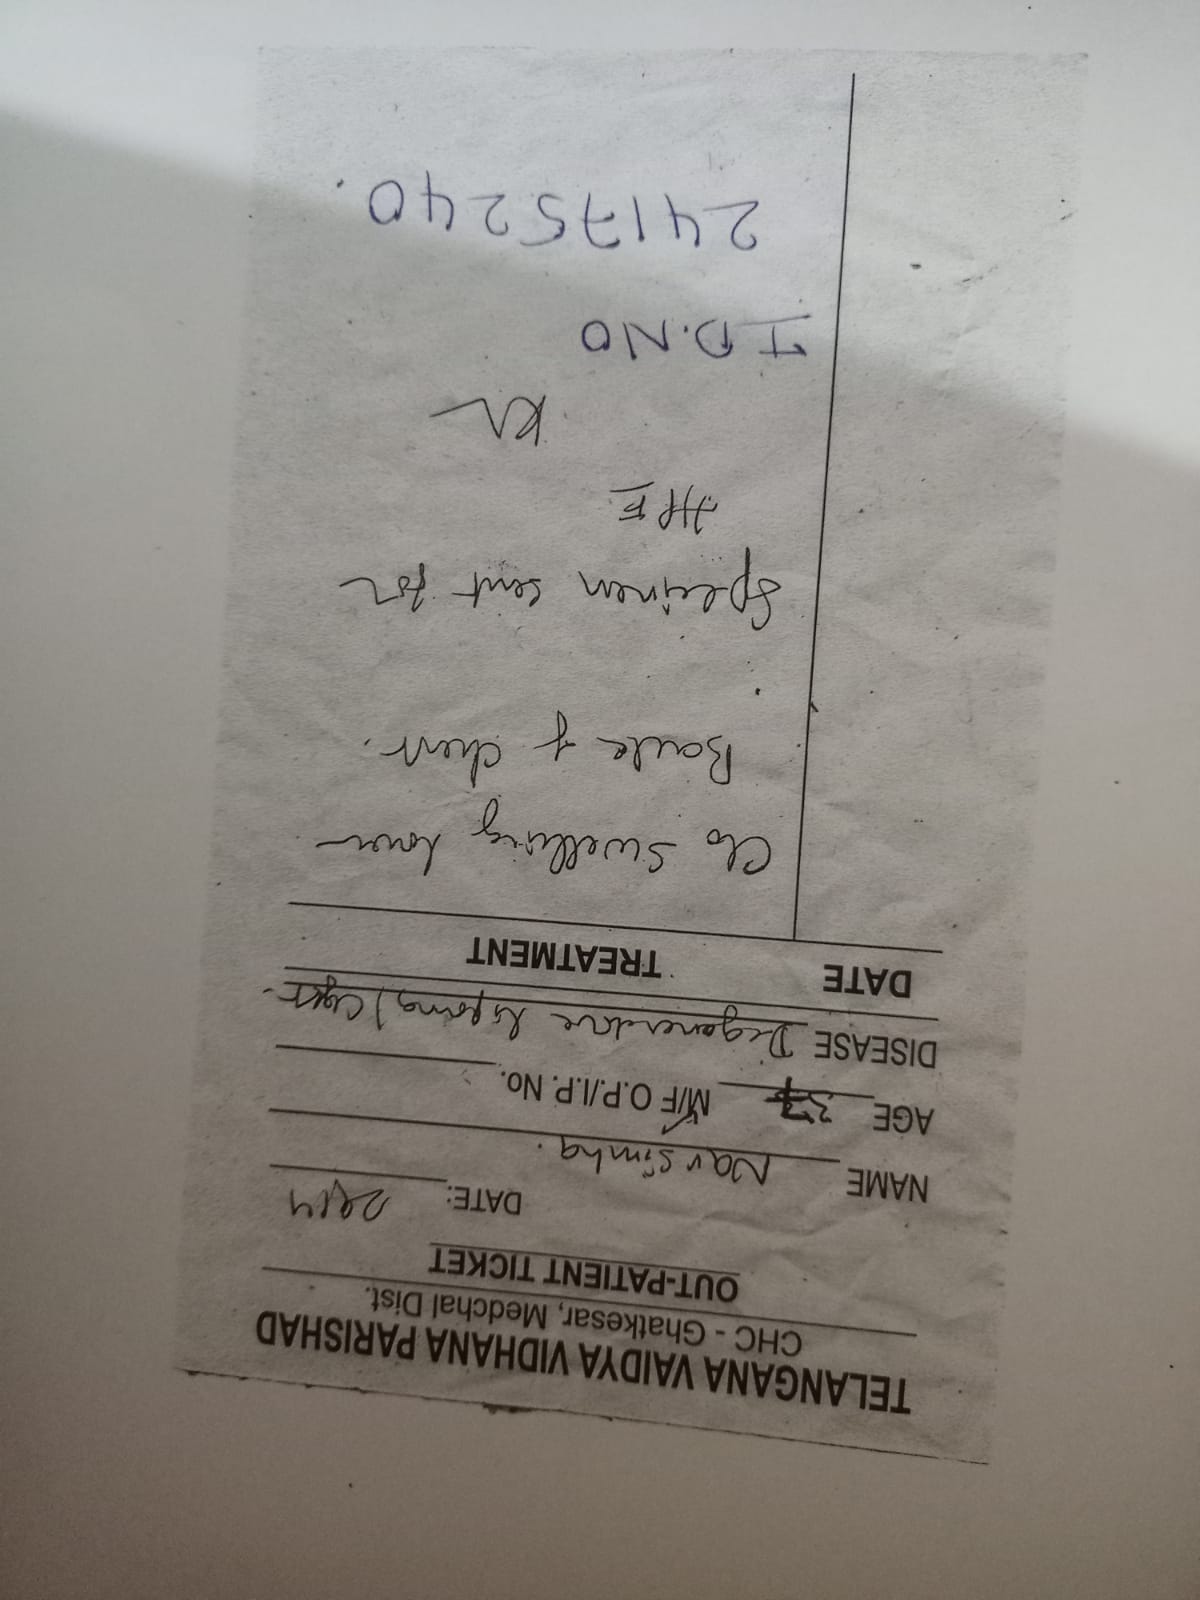 TELANGANA VAIDYA VIDHANA PARISHAD
CHC - Ghatkesar, Medchal Dist.
OUT-PATIENT TICKET
DATE:
NAME Narsimha.
AGE 37 M/F O.P./I.P. No.
DISEASE Cyst.
DATE TREATMENT
C/o Swelling lower
of chest.
Specimen sent for
HPE
I.D.NO
24175240.